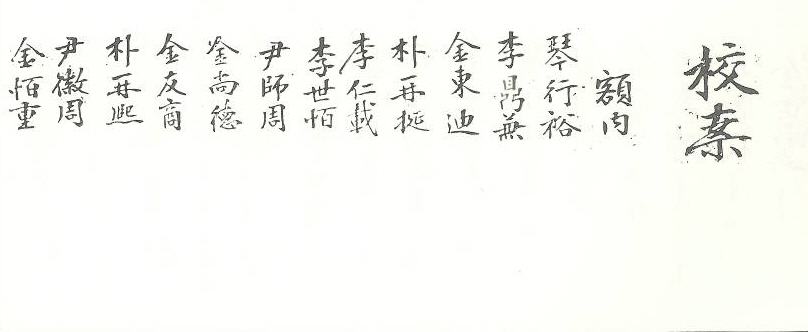 校案
額内
琴行裕
李鼎兼
金東迪
朴再挻
李仁載
李世恒
尹師周
金尚德
金友商
朴再熙
尹徽周
金恒重